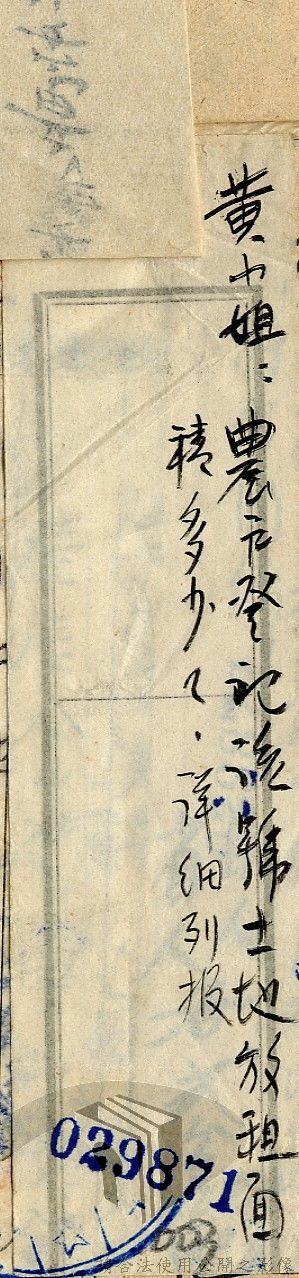 黄小姐：農户登记该號土地放租面
積多少？詳细列报
029871
009
請合法使用公開之影像